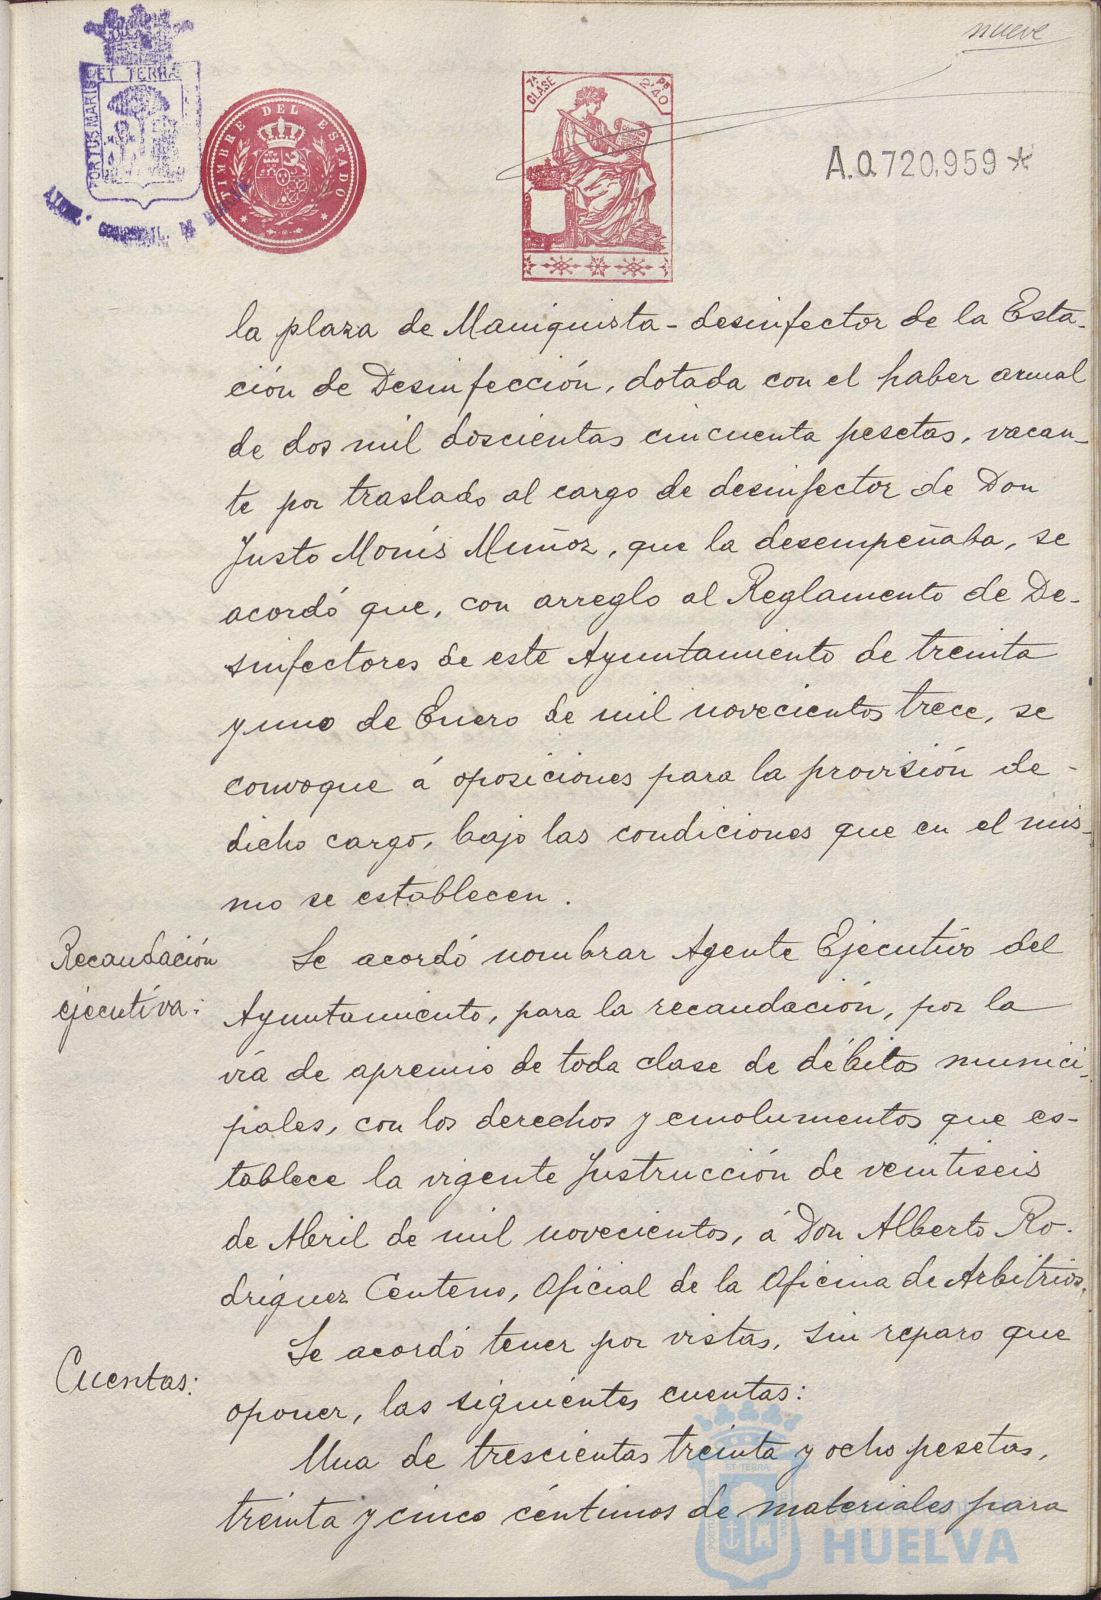 nueve
PORTUS MARIS ET TERRÆ
TIMBRE DEL ESTADO
7ª CLASE
Ps 2'40
A.0.720,959*
la plaza de Maniquista-desinfector de la Esta-
ción de Desinfección, dotada con el haber anual
de dos mil doscientas cincuenta pesetas, vacan-
te por traslado al cargo de desinfector de Don
Justo Monís Muñoz, que la desempeñaba, se
acordó que, con arreglo al Reglamento de De-
sinfectores de este Ayuntamiento de treinta
y uno de Enero de mil novecientos trece, se
convoque á oposiciones para la provisión de-
dicho cargo, bajo las condiciones que en el mis-
mo se establecen.
Recaudación
ejecutiva:
Se acordó nombrar Agente Ejecutivo del
Ayuntamiento, para la recaudación, por la
vía de apremio de toda clase de débitos munici-
pales, con los derechos y emolumentos que es-
tablece la vigente Instrucción de veintiseis
de Abril de mil novecientos, á Don Alberto Ro-
driguez Centeno, Oficial de la Oficina de Arbitrios.
Cuentas:
Se acordó tener por vistas, sin reparo que
oponer, las siguientes cuentas:
Una de trescientas treinta y ocho pesetas,
treinta y cinco céntimos de materiales para
HUELVA